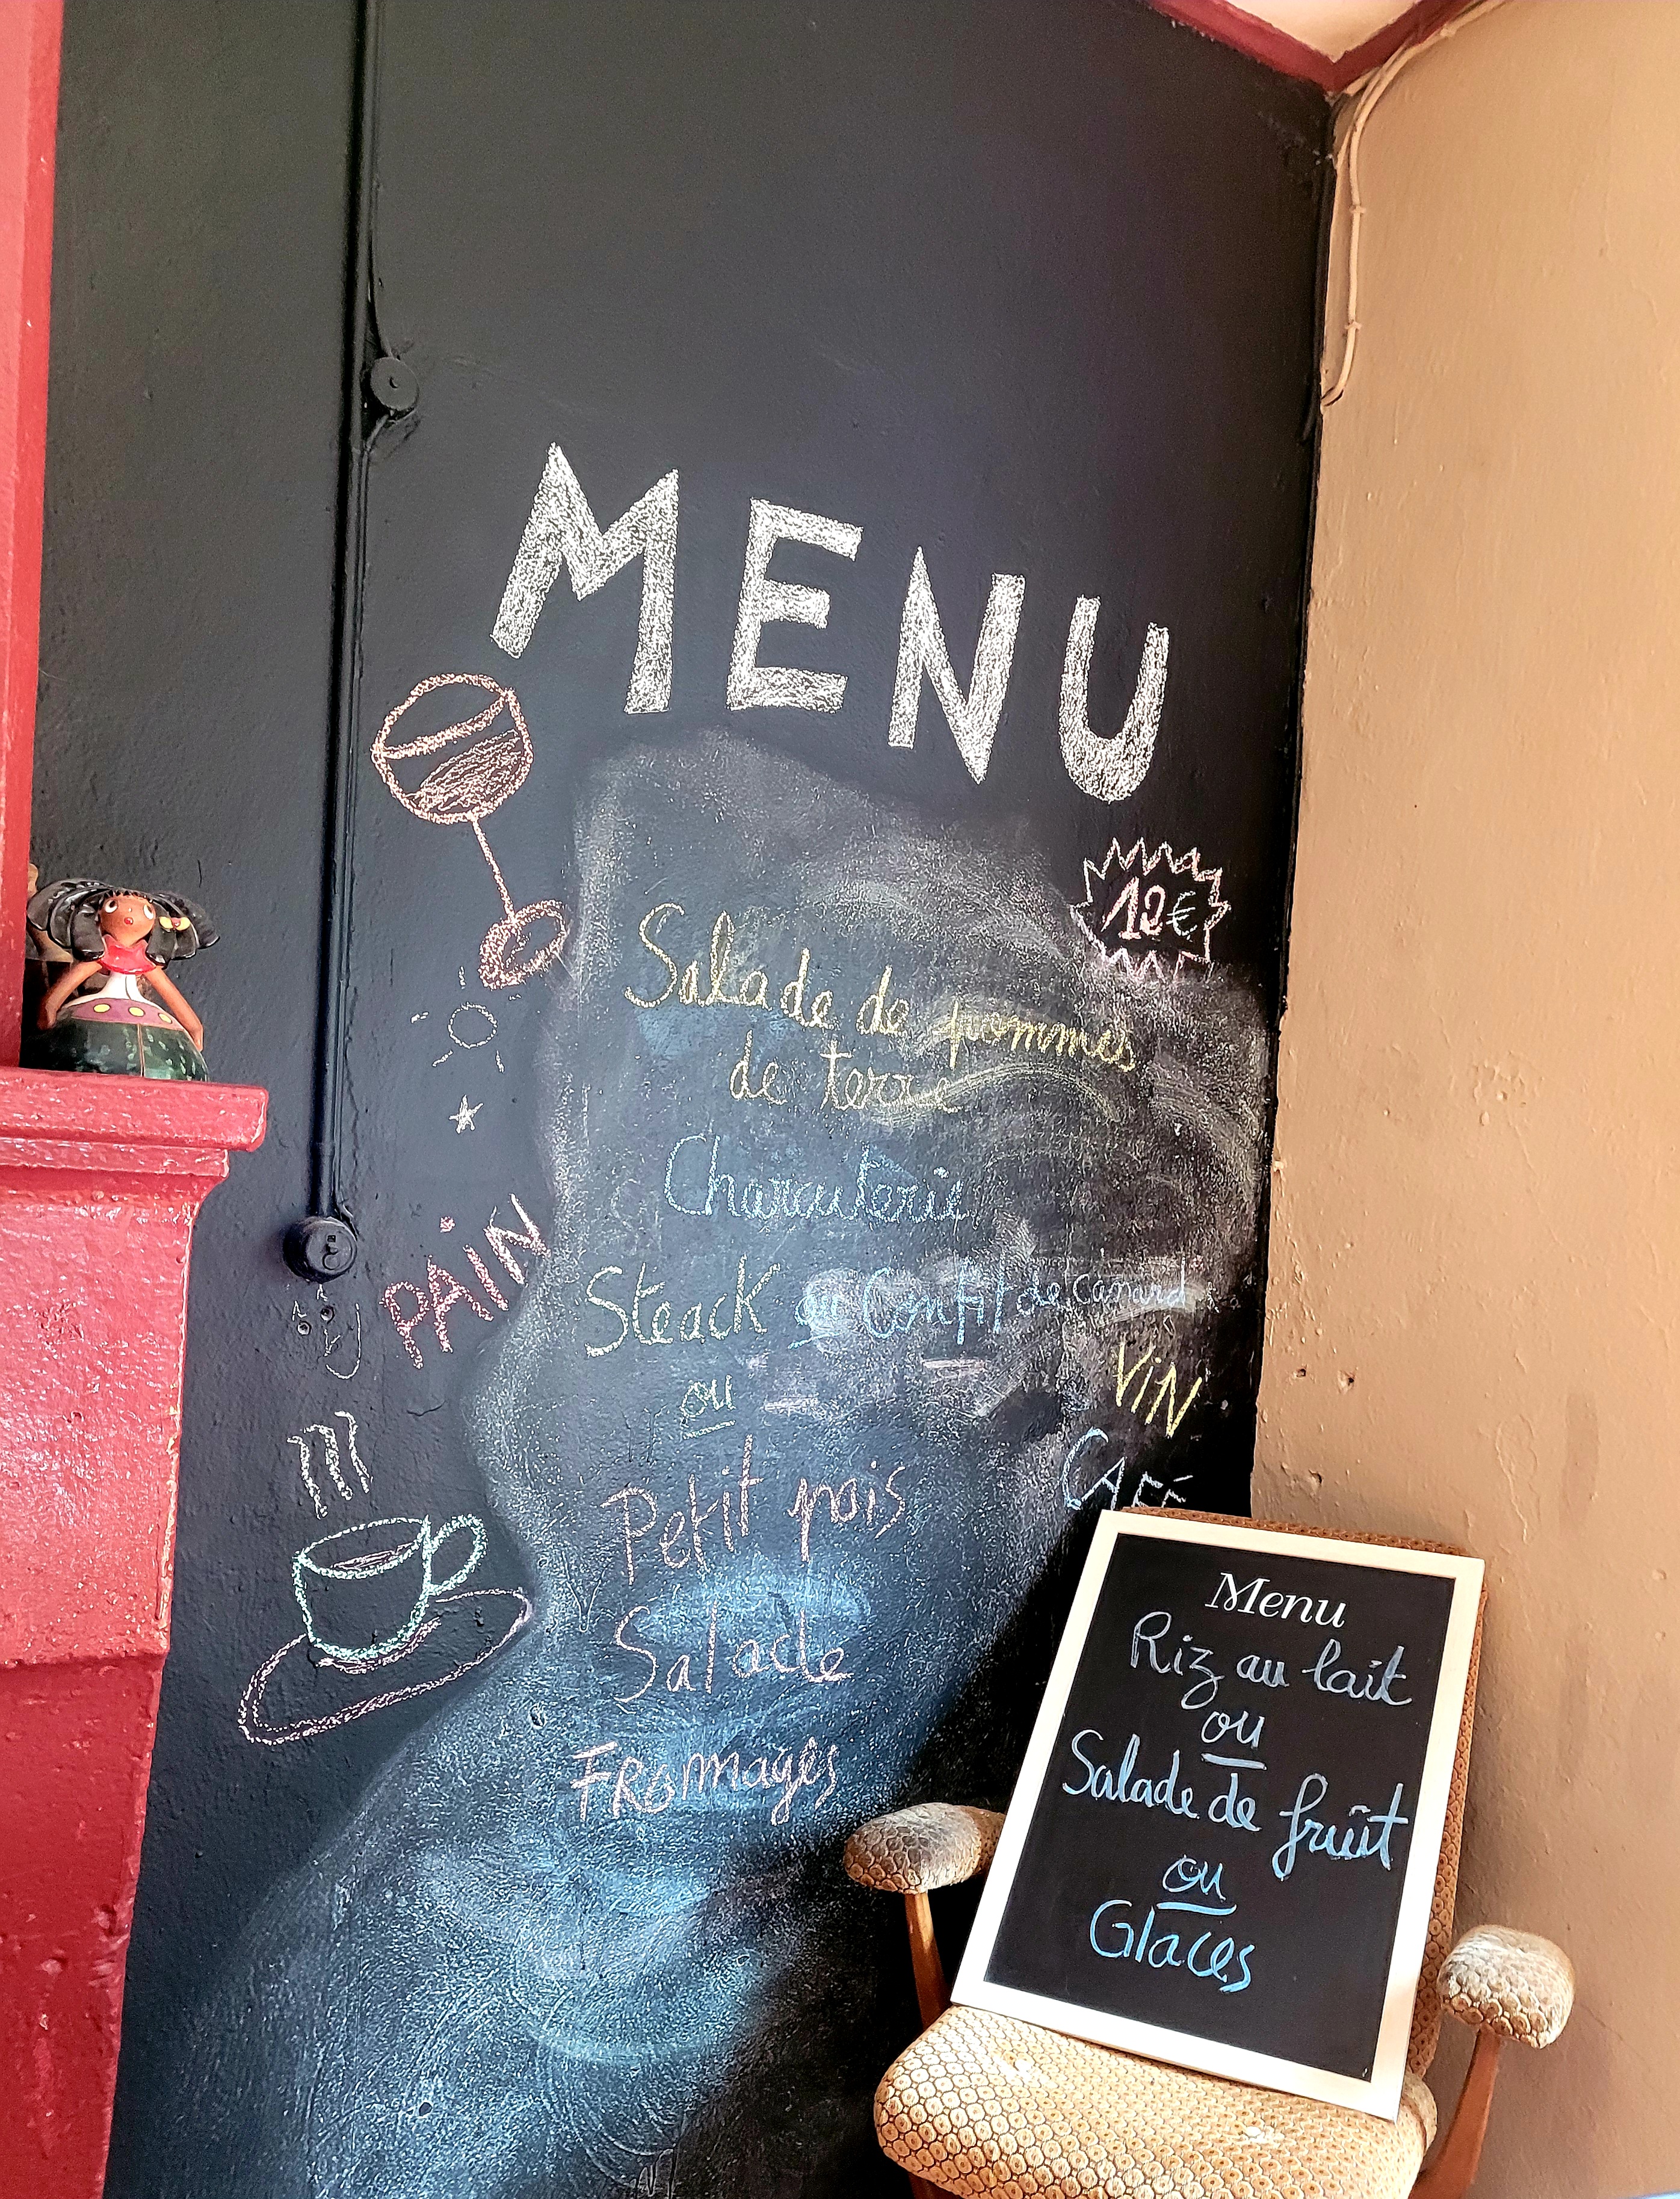 MENU
12€
Salade de pommes
de terre
Charcuterie
Steack ou Confit de canard
ou
PAIN
VIN
CAFÉ
Petit pois
Salade
FROmages
Menu
Riz au lait
ou
Salade de fruît
ou
Glaces